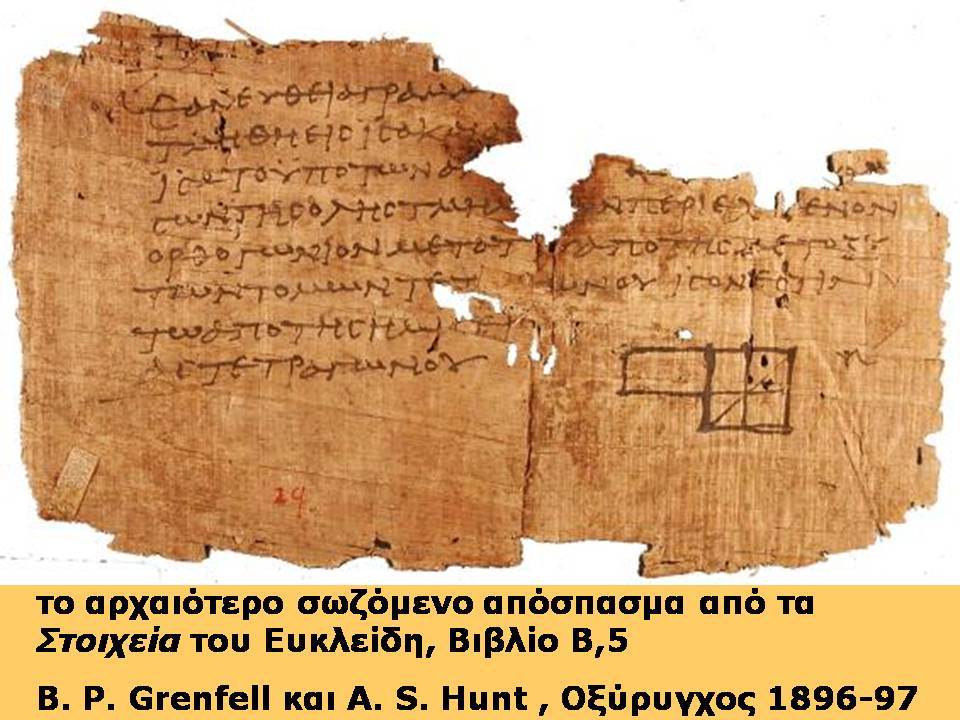 ΕΑΝ ΕΥΘΕΙΑ ΓΡΑΜΜ
ΤΜΗΘΗ ΕΙΣ ΙΣΑ Κ
ΙΣΑ ΤΟ ΥΠΟ ΤΩΝ
ΤΩΝ ΤΗΣ ΟΛΗΣ ΤΜΗΜ Ν ΠΕΡΙΕΧ ΜΕΝΟΝ
ΟΡΘΟΓΩΝΙΟΝ ΜΕΤΑ Τ ΑΠΟ ΤΗΣ ΜΕΤΟΞΥ
ΤΩΝ ΤΟΜΩΝ ΤΕΤ ΩΝΟΥ ΙΣΟΝ ΕΣΤΙΝ
ΤΩ ΑΠΟ ΤΗΣ ΗΜΙΣΕΙ
ΑΣ ΤΕΤΡΑΓΩΝΟΥ
29
το αρχαιότερο σωζόμενο απόσπασμα από τα
Στοιχεία του Ευκλείδη, Βιβλίο Β,5
B. P. Grenfell και A. S. Hunt , Οξύρυγχος 1896-97